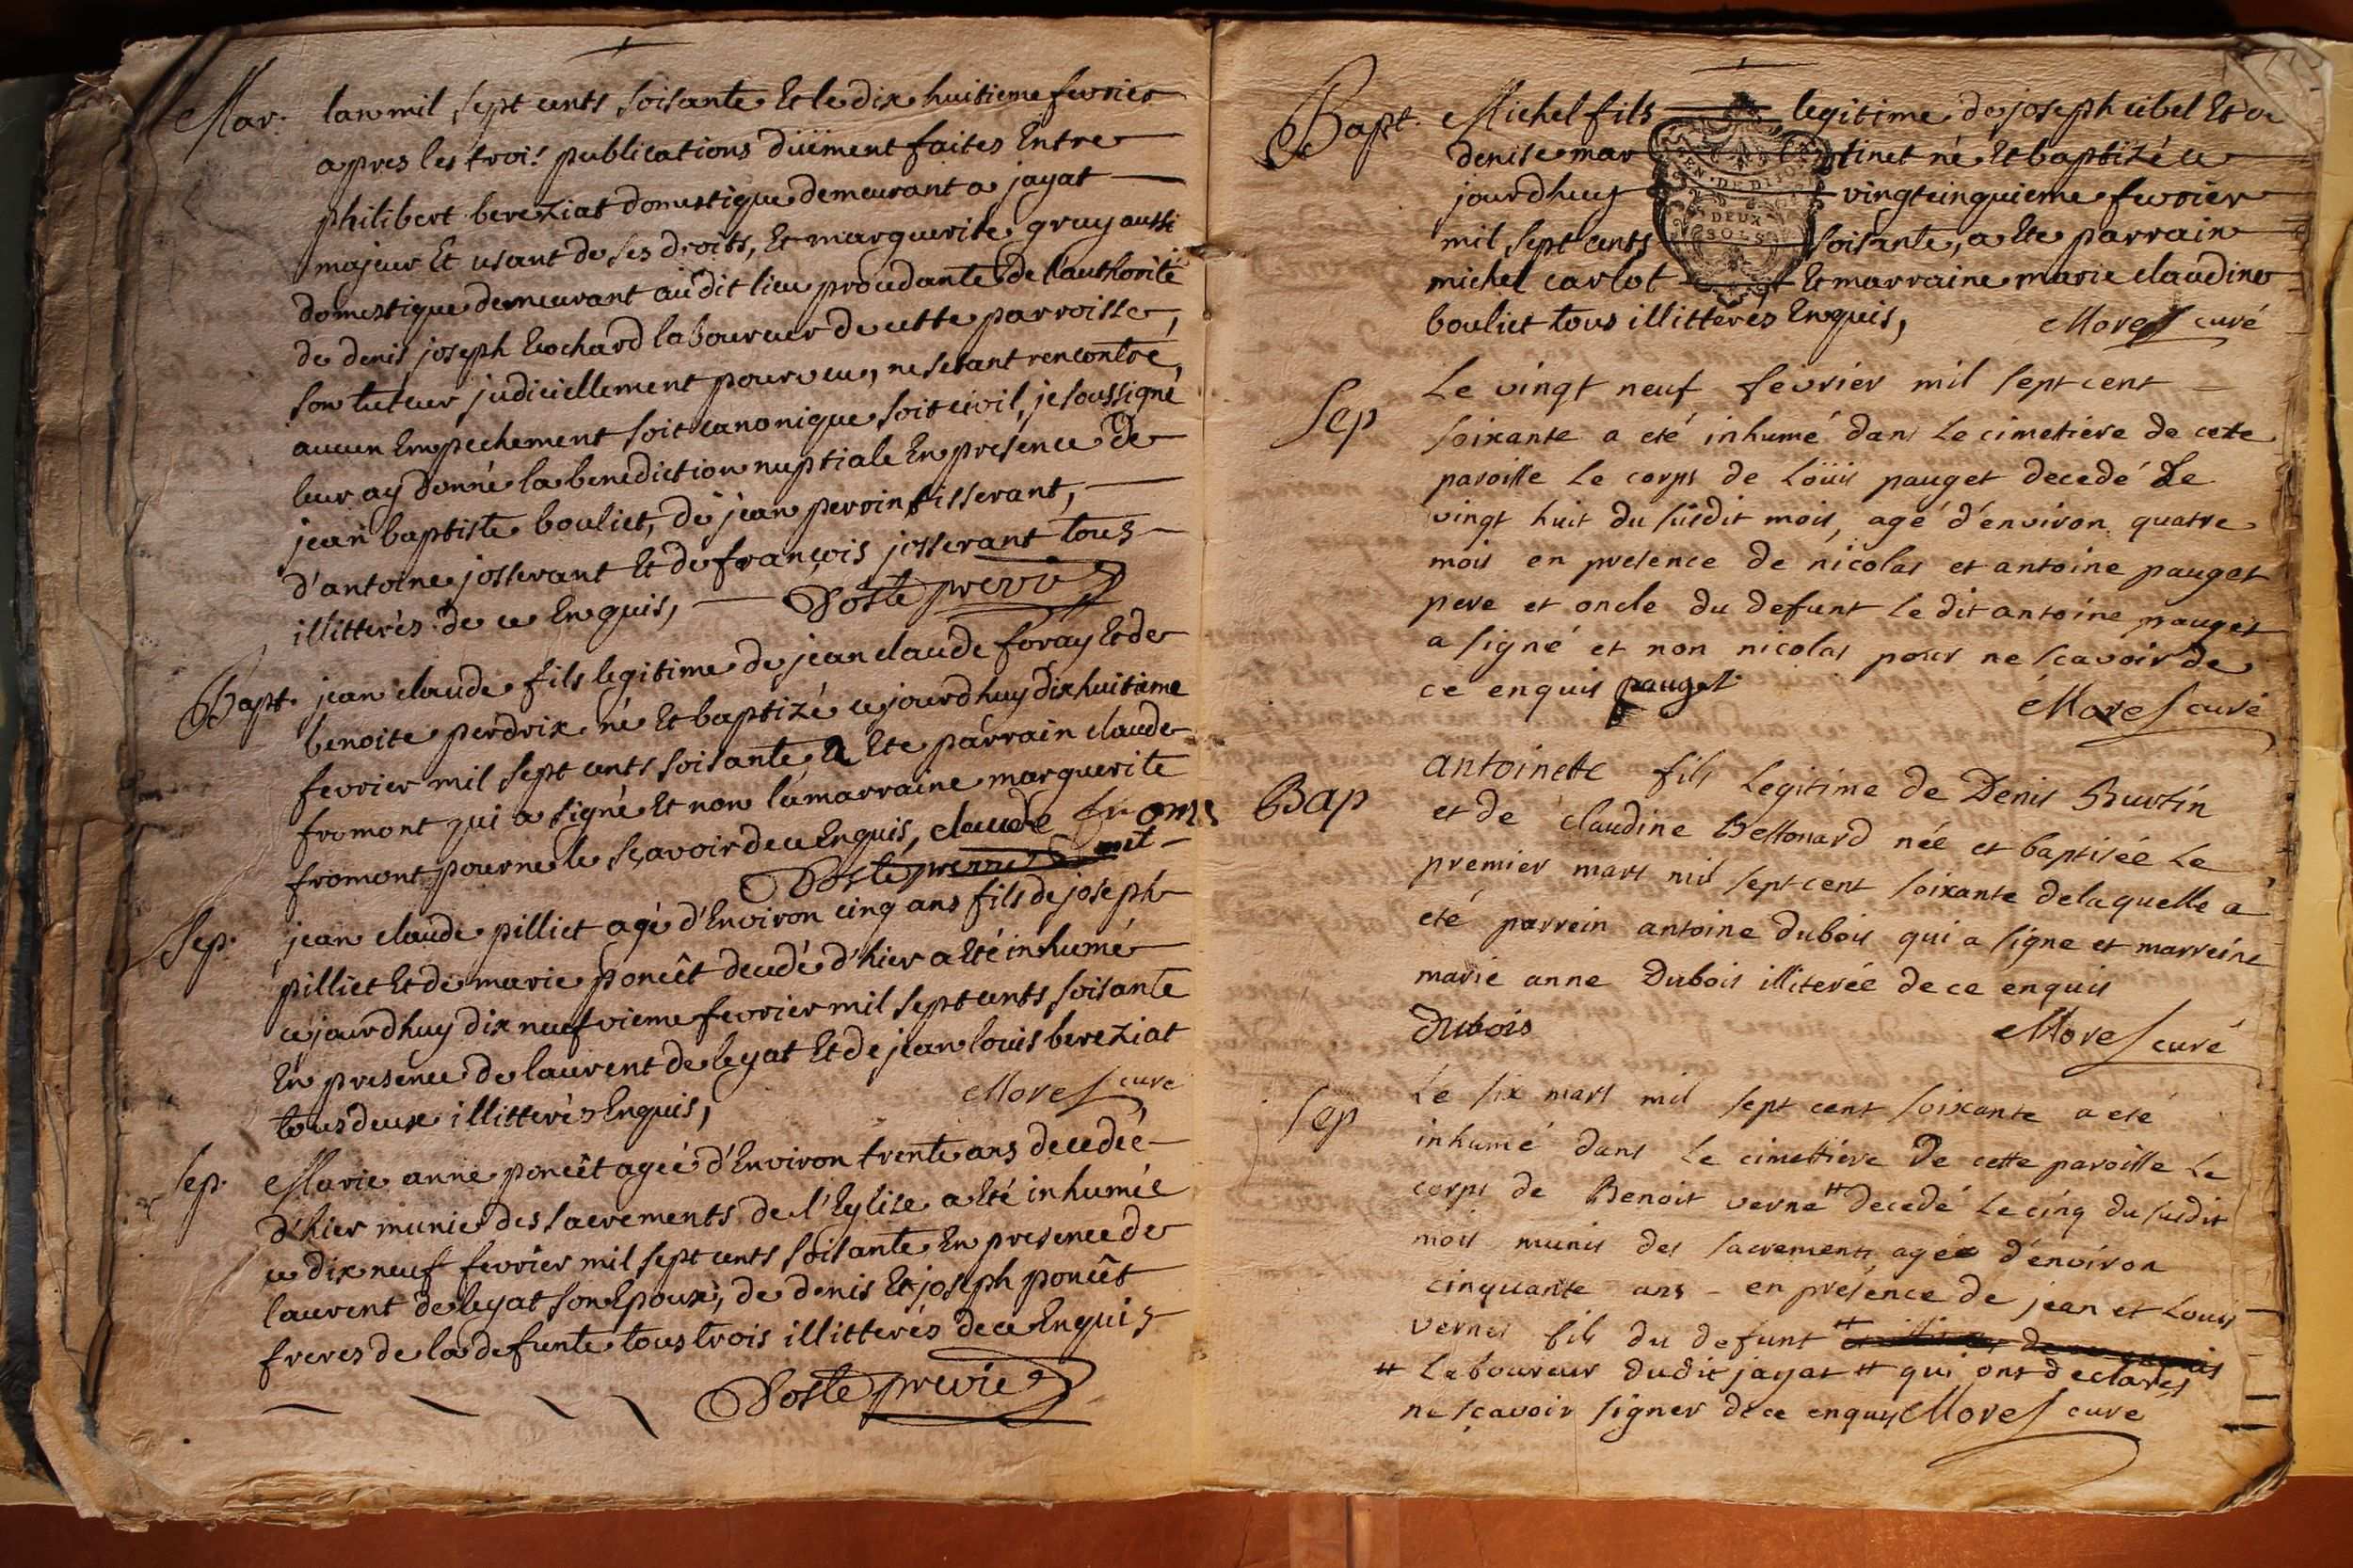 Mar. lan mil sept cents soisante Et le dix huitieme fevrier
apres les trois publications düement faites Entre
philibert bereziat domestique demeurant a jayat
majeur Et usant de ses droits, Et marguerite gruy aussi
domestique demeurant au dit lieu procedante de l'authorité
de denis joseph Cochard laboureur de cette parroisse,
son tuteur judiciellement pourveu, ne sétant rencontré,
aucun Empechement soit canonique soit civil, je soussigné
leur ay donné la benediction nuptiale En presence de
jean baptiste bouliet, de jean peroin tisserant,
d'antoine josserant Et de françois josserant tous
illitterés de ce Enquis, Poste previe
Bapt. jean claude fils legitime de jean claude foray Et de
benoite perdrix né Et baptizé ce jourdhuy dixhuitieme
fevrier mil sept cents soisante a Ete parrain claude
fromont qui a signé Et non la marraine marguerite
fromont pour ne le sçavoir de ce Enquis, claude from
ont
Poste previe
Sep. jean claude pilliet agé d'Environ cinq ans fils de joseph
pilliet Et de marie poncêt decedé d'hier a Eté inhumé
ce jourdhuy dix neufvieme fevrier mil sept cents soisante
En presence de laurent delegat Et de jean louis bereziat
tous deux illitterés Enquis, Morel curé
Sep. Marie anne poncêt ageé d'Environ trente ans decedée
d'hier munie des sacrements de l'Eglise a Eté inhumée
ce dix neuf fevrier mil sept cents soisante En presence de
laurent delegat son Epoux, de denis Et joseph poncêt
freres de la defunte tous trois illitterés de ce Enquis
Poste previe
Bapt. Michel fils legitime de joseph Et de
denise mar tinet né Et baptizé ce
jourdhuy vingtcinquieme fevrier
mil sept cents soisante, a Ete parrain
michel carlot Et marraine marie claudine
bouliet tous illitterés Enquis, Morel curé
DEUX
SOLS
Le vingt neuf fevrier mil sept cent
Sep soixante a eté inhumé dans Le cimetiere de cette
paroisse Le corps de Loüis pauget decedé Le
vingt huit du susdit mois, agé d'environ quatre
mois en presence de nicolas et antoine pauget
pere et oncle du defunt Le dit antoine pauget
a signé et non nicolas pour ne scavoir de
ce enquis pauget Morel curé
antoinette fils Legitime de Denis Burtin
Bap et de claudine Bellonard née et baptisée Le
premier mars mil sept cent soixante de laquelle a
eté parrein antoine Dubois qui a signe et marreine
marie anne Dubois illiterée de ce enquis
Dubois Morel curé
Le six mars mil sept cent soixante a eté
Sep inhumé dans Le cimettiere De cette paroisse Le
corps de Benoit verne # Decedé Le cinq du susdit
mois munis des sacrements agée d'environ
cinquante ans - en presence de jean et Louis
vernes fils du defunt #
# Laboureur dudit jayat # qui ont declarés
ne sçavoir signer de ce enquis Morel cure